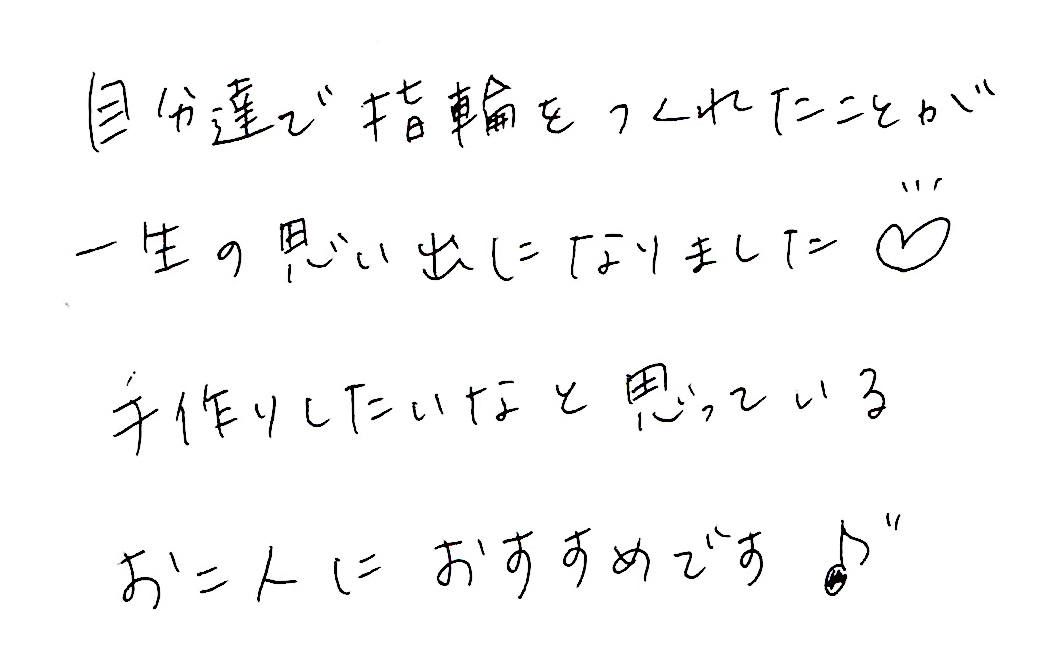 自分達で指輪をつくれたことが
一生の思い出になりました♡
手作りしたいなと思っている
お二人におすすめです♪